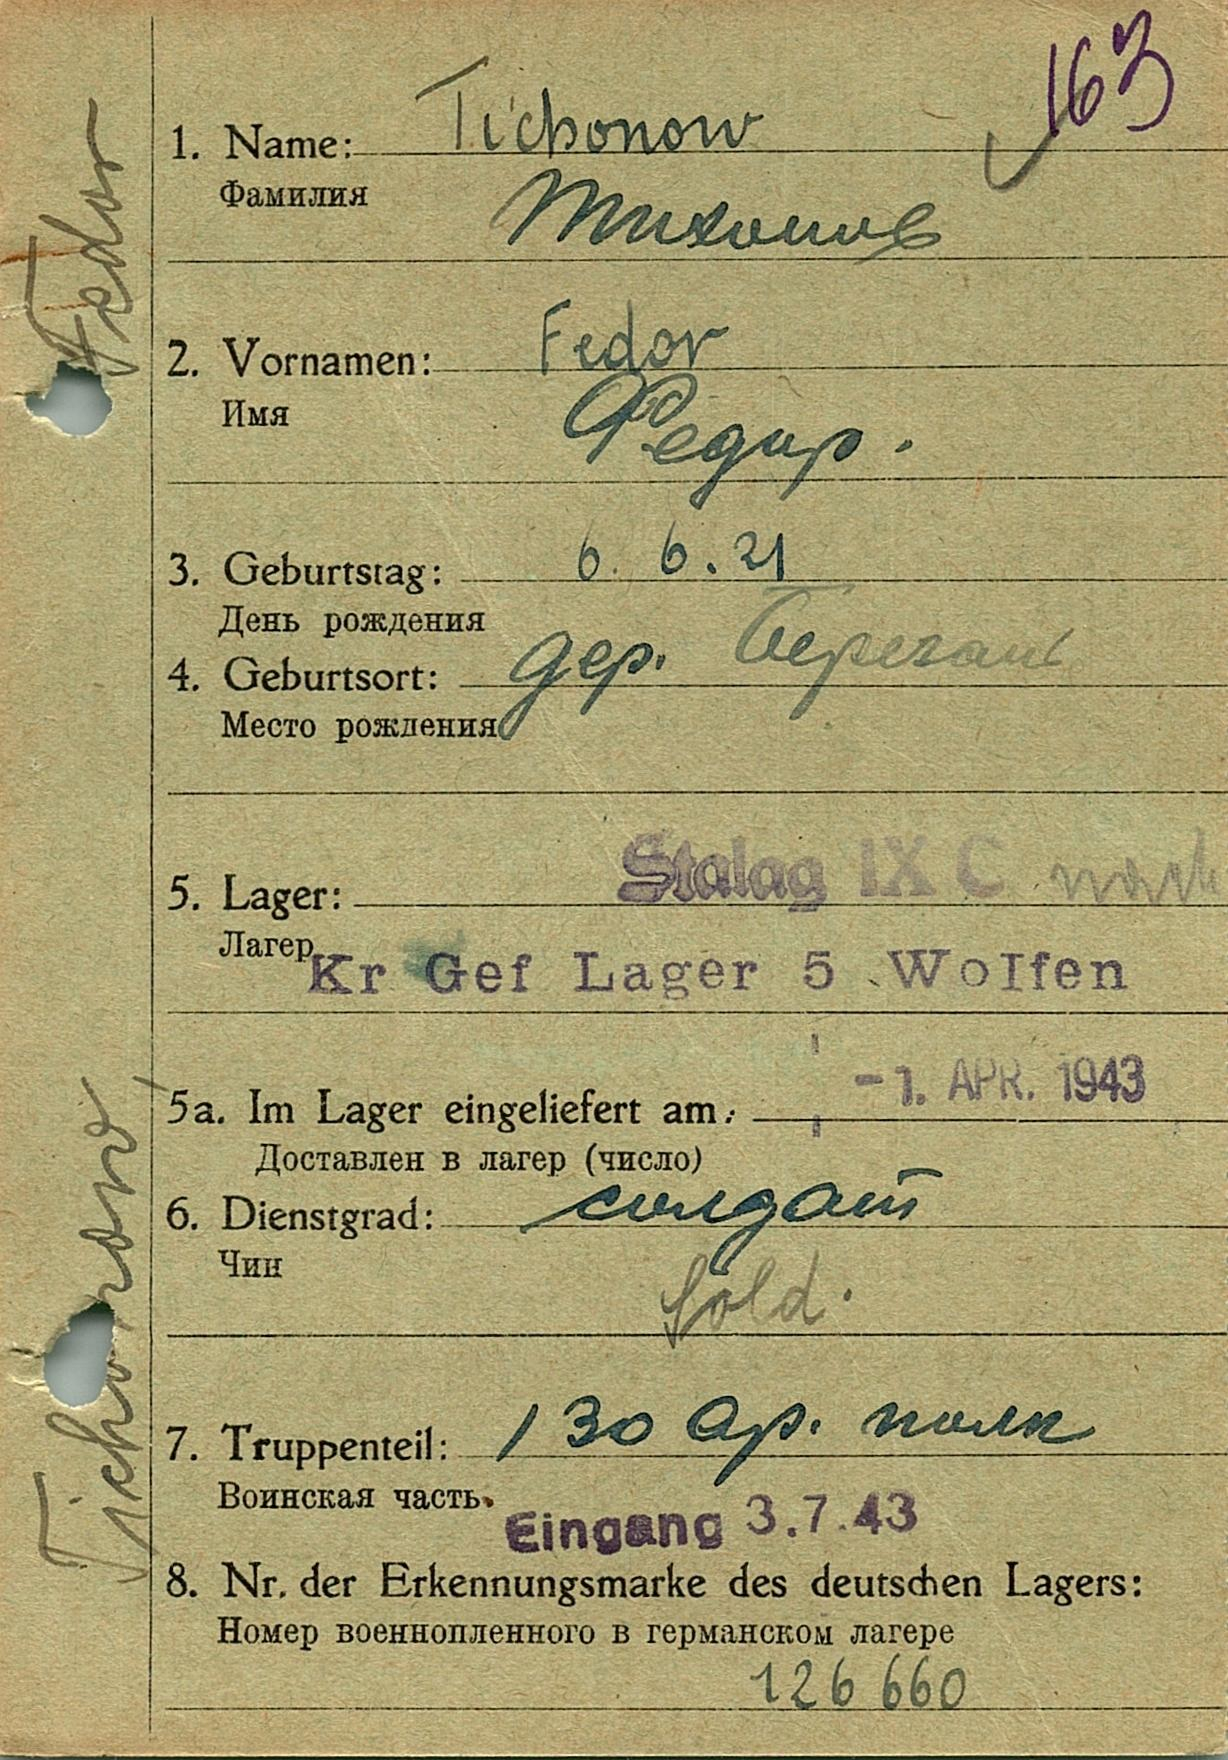 163
1. Name: Tichonow
Фамилия
Тихонов
2. Vornamen: Fedor
Имя
Федор.
3. Geburtstag: 6. 6. 21
День рождения
4. Geburtsort: дер.
Место рождения
5. Lager: Stalag IX C
Лагер
Kr Gef Lager 5 Wolfen
5a. Im Lager eingeliefert am: -1. APR. 1943
Доставлен в лагер (число)
6. Dienstgrad: солдат
Чин
Sold.
7. Truppenteil: 130 ар. полк
Воинская часть
Eingang 3.7.43
8. Nr. der Erkennungsmarke des deutschen Lagers:
Номер военнопленного в германском лагере
126 660
Tichonow, Fedor